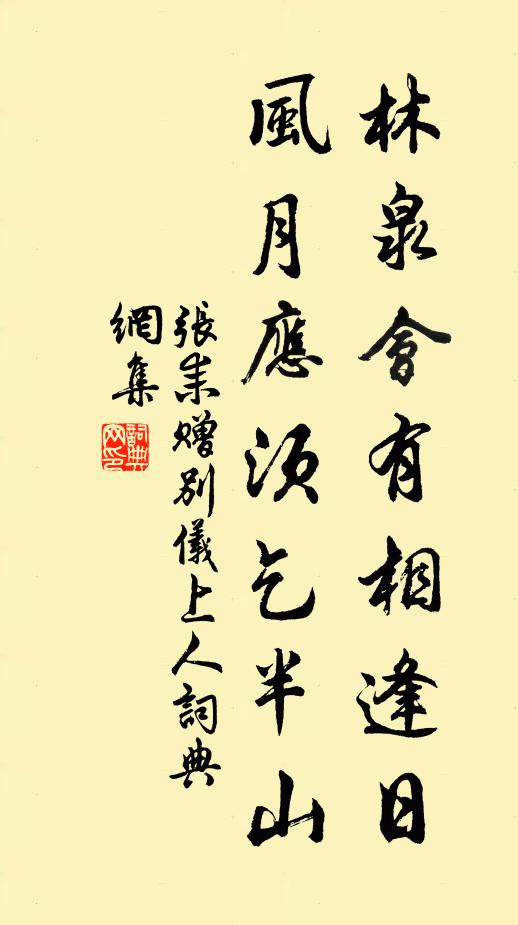 林泉會有相逢日
風月應須乞半山
張耒贈別儀上人詞典
網集
詞典網印